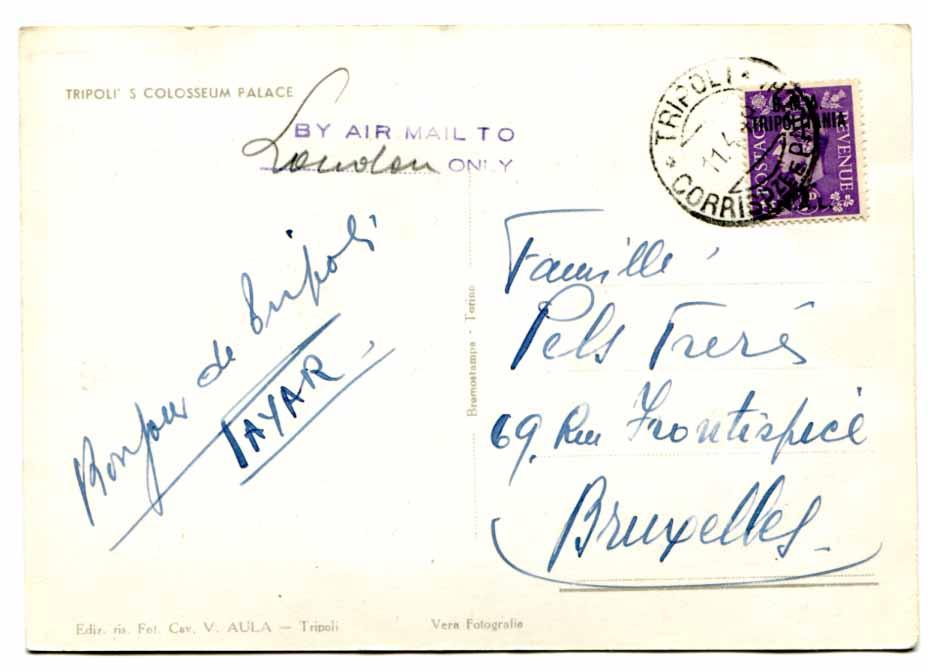 TRIPOLI' S COLOSSEUM PALACE
BY AIR MAIL TO
London ONLY
TRIPOLI
CORRISP
11.4
B.M.A.
TRIPOLITANIA
POSTAGE REVENUE
M.A.L.
Bonjour de Tripoli
TAYAR
Famille
Pels Freres
69, Rue Frontispice
Bruxelles
Bromostampa - Torino
Ediz. ris. Fot. Cav. V. AULA — Tripoli
Vera Fotografia